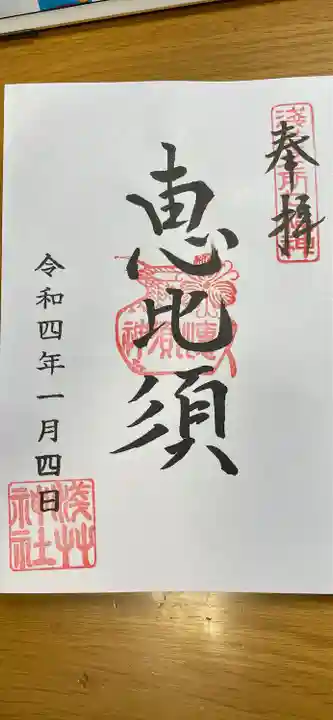 奉拝
恵比須
令和四年一月四日
浅草
神社